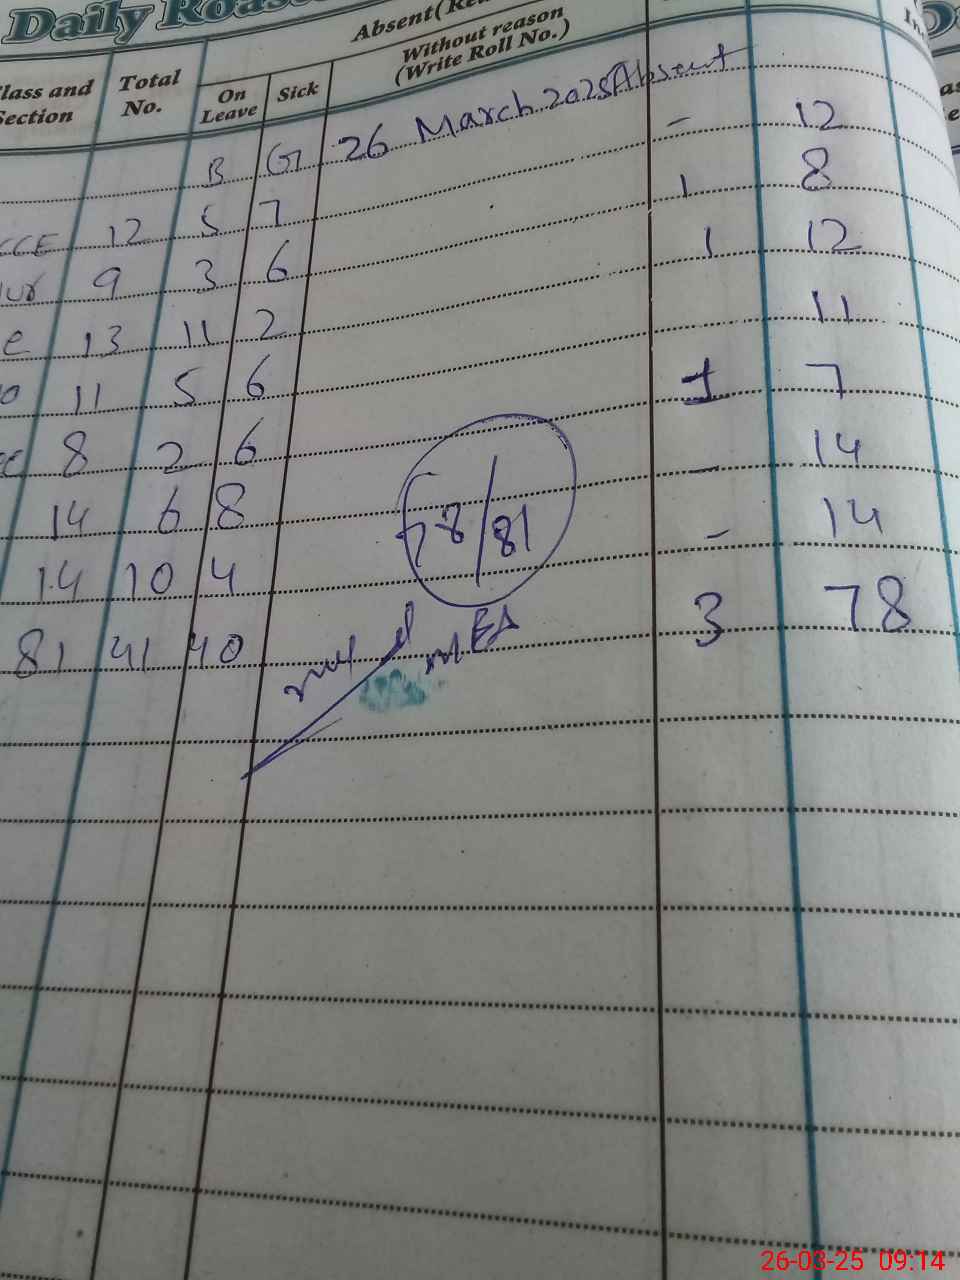 Daily
Absent
Class and Section Total No. On Leave Sick Without reason (Write Roll No.)
B G 26 March 2025 Absent
ECCE 12 5 7 - 12
9 3 6 1 8
13 11 2 1 12
11 5 6 11
8 2 6 1 7
14 6 8 - 14
14 10 4 - 14
81 41 40 3 78
78/81
MEA
26-03-25 09:14